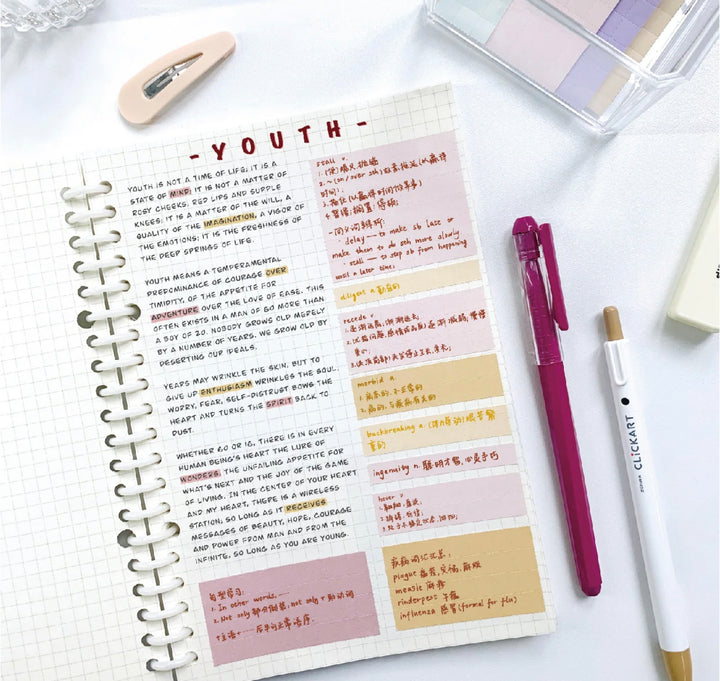 - YOUTH -
YOUTH IS NOT A TIME OF LIFE; IT IS A
STATE OF MIND; IT IS NOT A MATTER OF
ROSY CHEEKS, RED LIPS AND SUPPLE
KNEES; IT IS A MATTER OF THE WILL, A
QUALITY OF THE IMAGINATION, A VIGOR OF
THE EMOTIONS; IT IS THE FRESHNESS OF
THE DEEP SPRINGS OF LIFE.
YOUTH MEANS A TEMPERAMENTAL
PREDOMINANCE OF COURAGE OVER
TIMIDITY, OF THE APPETITE FOR
ADVENTURE OVER THE LOVE OF EASE. THIS
OFTEN EXISTS IN A MAN OF 60 MORE THAN
A BOY OF 20. NOBODY GROWS OLD MERELY
BY A NUMBER OF YEARS. WE GROW OLD BY
DESERTING OUR IDEALS.
YEARS MAY WRINKLE THE SKIN, BUT TO
GIVE UP ENTHUSIASM WRINKLES THE SOUL.
WORRY, FEAR, SELF-DISTRUST BOWS THE
HEART AND TURNS THE SPIRIT BACK TO
DUST.
WHETHER 60 OR 16, THERE IS IN EVERY
HUMAN BEING'S HEART THE LURE OF
WONDERS, THE UNFAILING APPETITE FOR
WHAT'S NEXT AND THE JOY OF THE GAME
OF LIVING. IN THE CENTER OF YOUR HEART
AND MY HEART, THERE IS A WIRELESS
STATION; SO LONG AS IT RECEIVES
MESSAGES OF BEAUTY, HOPE, COURAGE
AND POWER FROM MAN AND FROM THE
INFINITE, SO LONG AS YOU ARE YOUNG.
句型学习:
1. In other words, ......
2. Not only 部分倒装, not only + 助动词
+主语+ ...... 后半句正常语序.
stall v.
1. (使)熄火, 抛锚
delay — to make sb late or
make them to do sth more slowly
stall — to stop sb from happening
until a later time;
diligent a. 勤奋的
recede v.
1. 逐渐远离, 渐渐远去;
morbid a.
1. 病态的, 不正常的
2. 病的, 与疾病有关的
backbreaking a.
ingenuity n. 聪明才智, 心灵手巧
hover v.
疾病词汇汇总:
plague 瘟疫, 灾祸, 麻烦
measle 麻疹
rinderpest 牛瘟
influenza 感冒 (formal for flu)
CLiCKART
ZEBRA